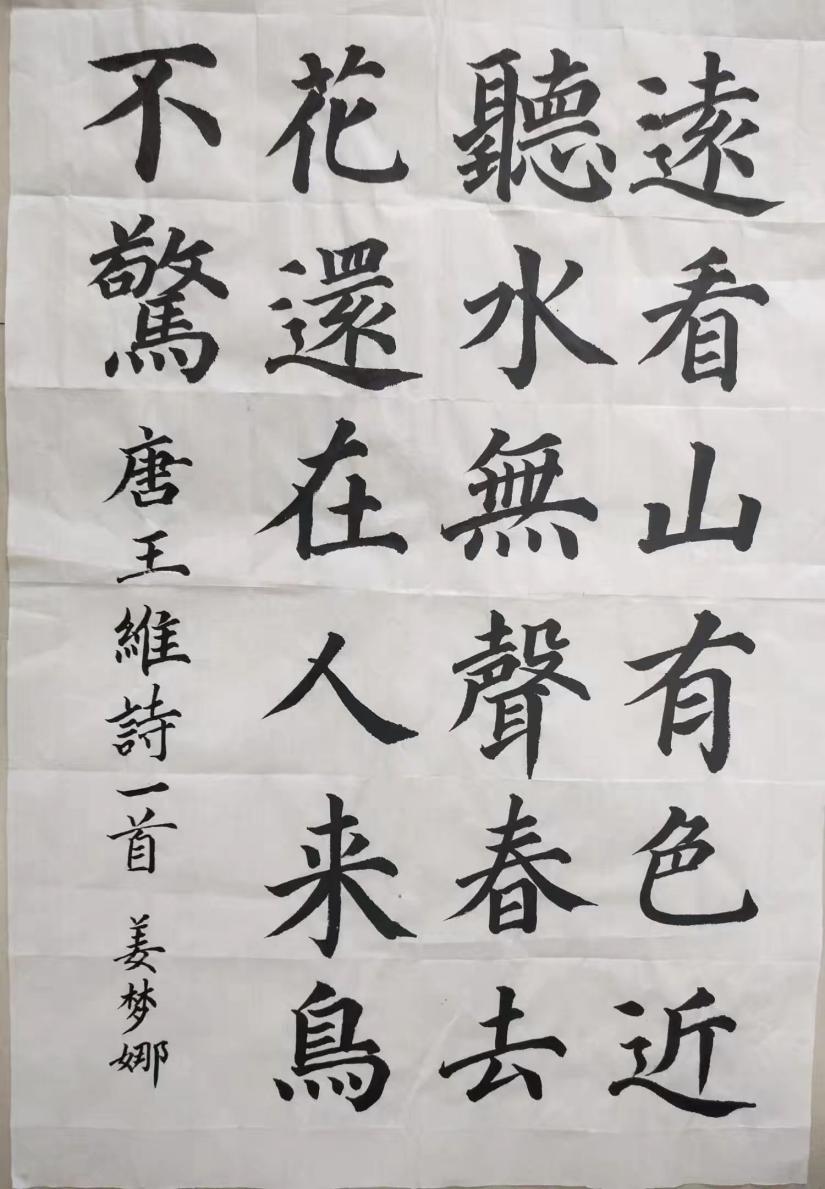 遠看山有色近
聽水無聲春去
花還在人来鳥
不驚 唐王維詩一首 姜梦娜